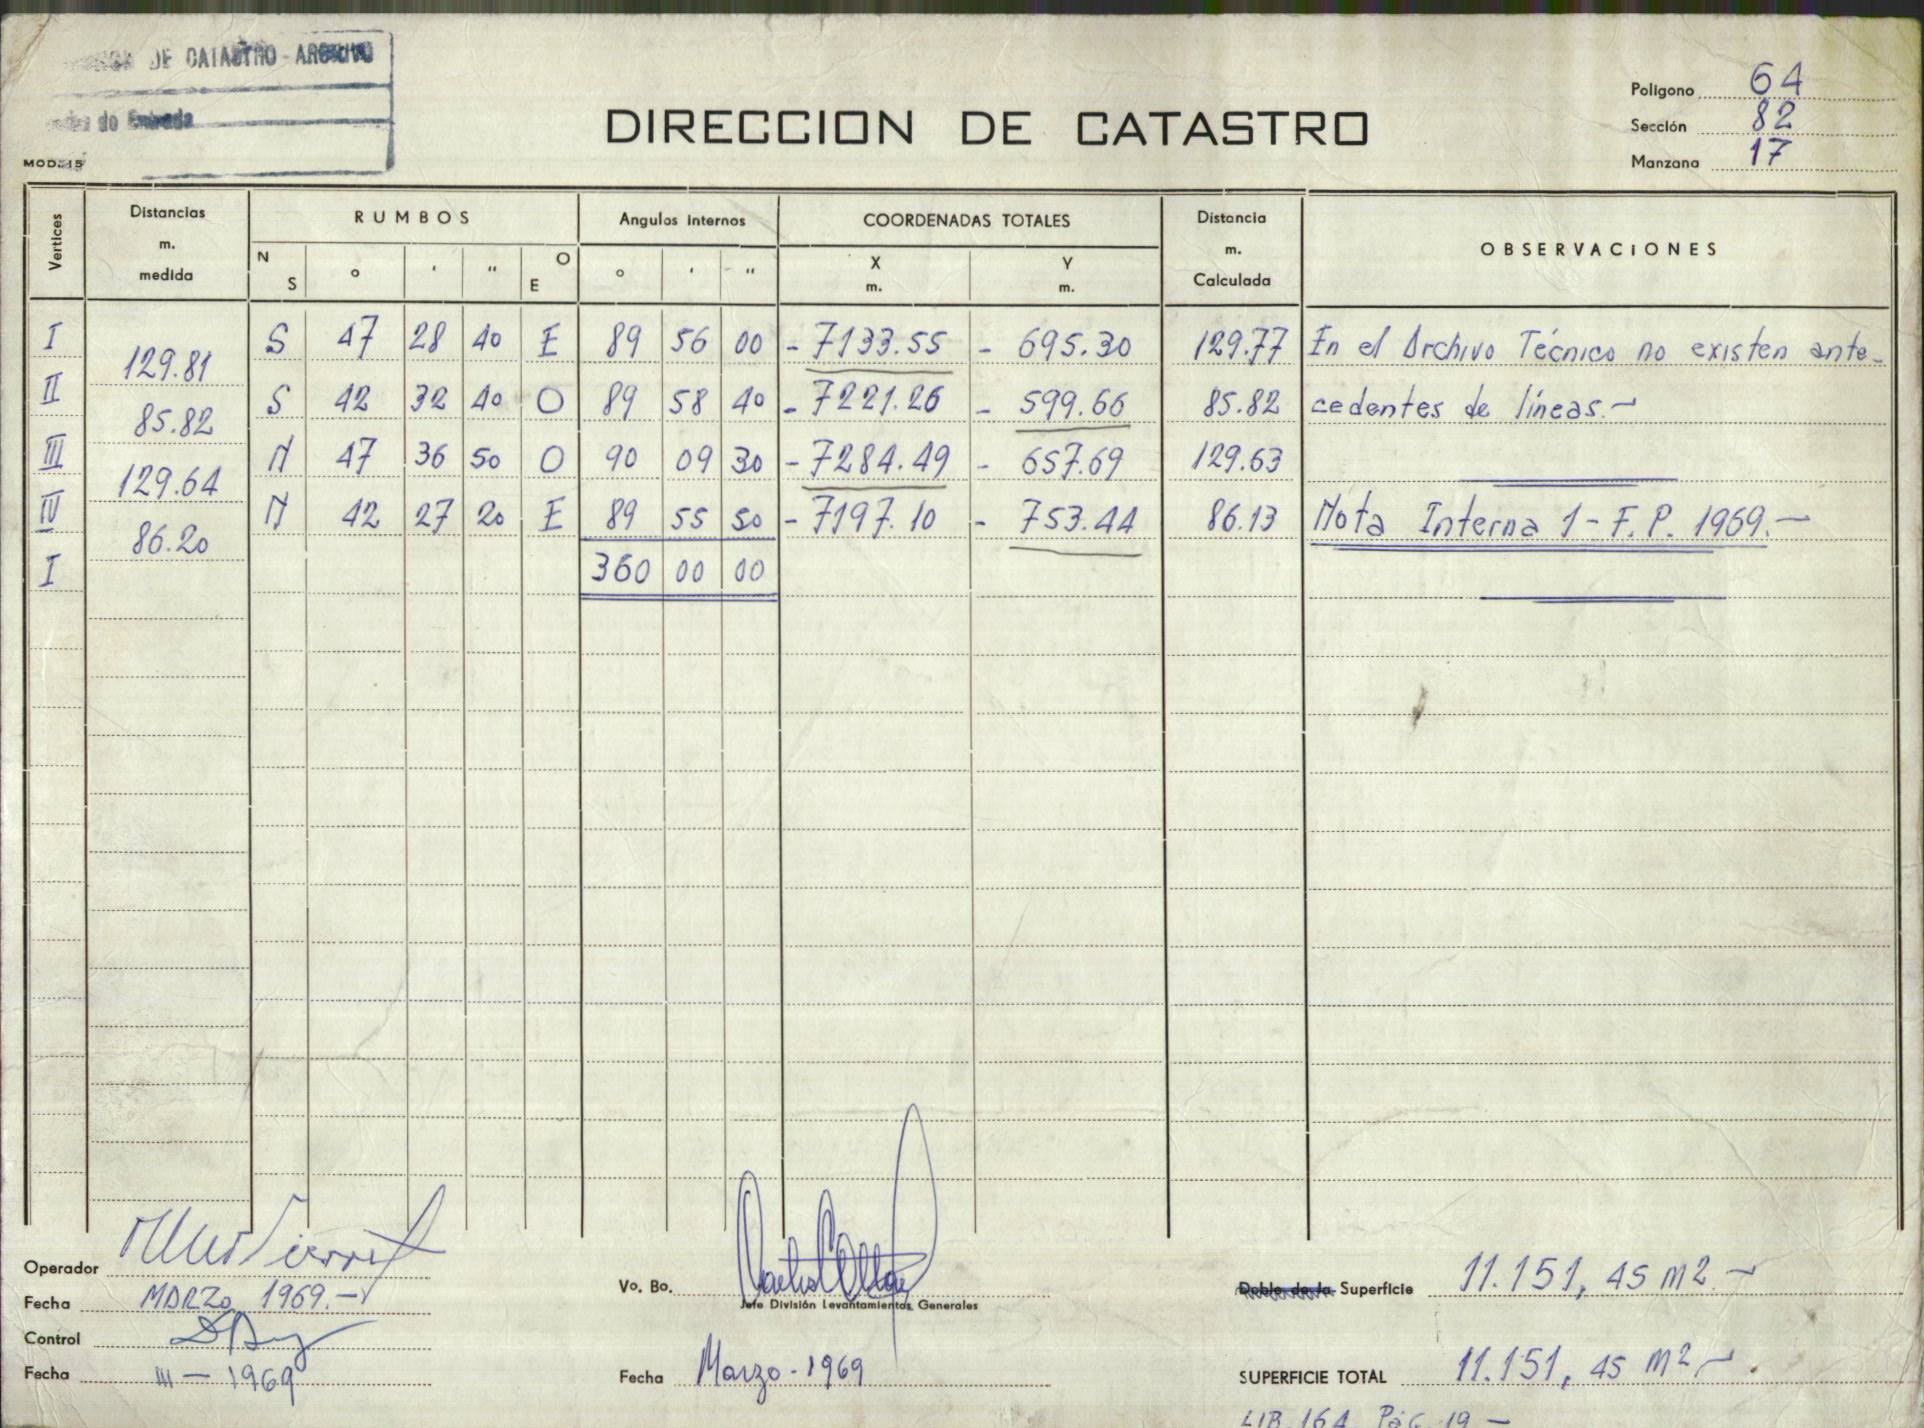 DE CATASTRO - ARCHIVO
de Entrada
MOD. 15
DIRECCION DE CATASTRO
Poligono 64
Sección 82
Manzana 17
Vertices Distancias m. medida RUMBOS Angulos Internos COORDENADAS TOTALES Distancia m. Calculada OBSERVACIONES
N S ° ' " O E ° ' " X m. Y m.
I S 47 28 40 E 89 56 00 - 7133.55 - 695.30 129.77 En el Archivo Técnico no existen ante-
129.81
II S 42 32 40 O 89 58 40 - 7221.26 - 599.66 85.82 cedentes de líneas.-
85.82
III N 47 36 50 O 90 09 30 - 7284.49 - 657.69 129.63
129.64
IV N 42 27 20 E 89 55 50 - 7197.10 - 753.44 86.13 Nota Interna 1 - F.P. 1969.-
86.20
I 360 00 00
Operador
Fecha MARZO 1969.-
Control
Fecha III - 1969
Vo. Bo.
Jefe División Levantamientos Generales
Fecha Marzo - 1969
Doble de la Superficie 11.151,45 m2.-
SUPERFICIE TOTAL 11.151,45 m2.-
LIB. 164 Pág. 19 -